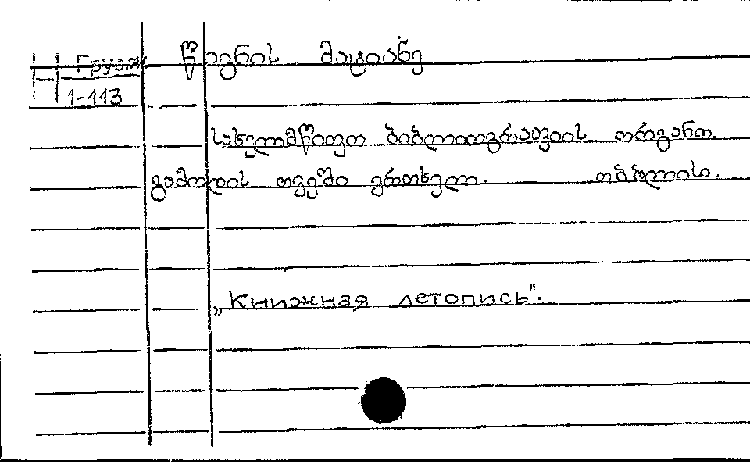 Н Грузин
1-113
წიგნის მატიანე
სახელმწიფო ბიბლიოგრაფიის ორგანო.
გამოდის თვეში ერთხელ. თბილისი.
„Книжная летопись".